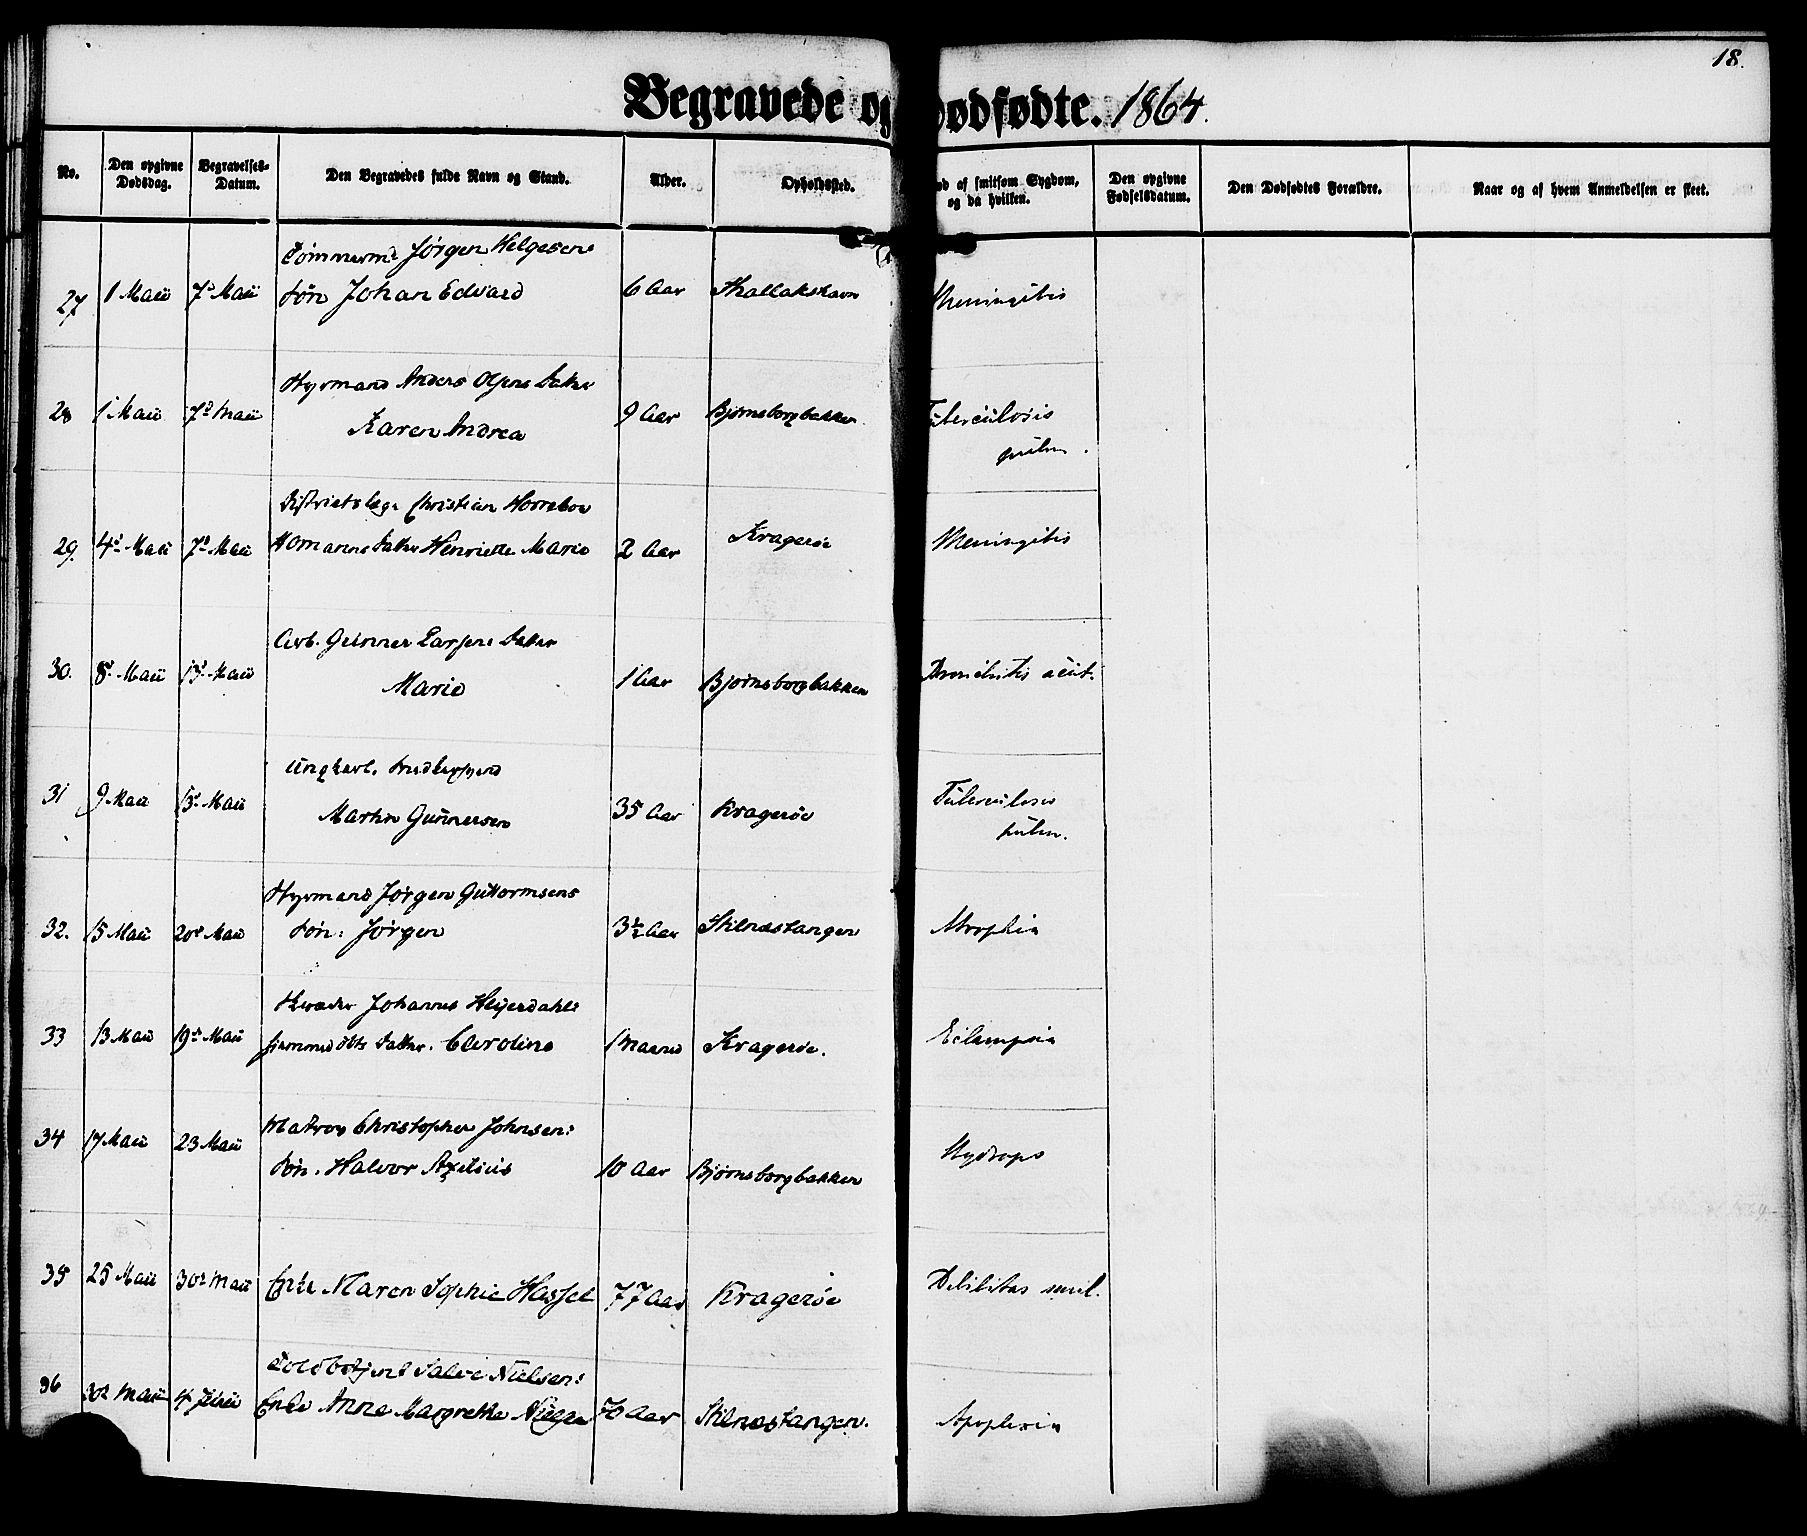 18.
Begravede og Dødfødte. 1864.
No. Den opgivne Dødsdag. Begravelses-Datum. Den Begravedes fulde Navn og Stand. Alder. Opholdssted. af smitsom Sygdom, og da hvilken. Den opgivne Fødselsdatum. Den Dødfødtes Forældre. Naar og af hvem Anmeldelsen er skeet.
Tømmerm: Jørgen Helgesens
27 1 Maii 7de Maii Søn Johan Edvard 6 Aar Meningitis
Styrmand Anders Olsens Datter
28 1 Maii 7de Maii Karen Andrea 9 Aar Bjørnsborgbakken Tuberculosis
pulm.
Districtslæge Christian Horrebow
29. 4de Maii 7de Maii Homanns Datter Henriette Marie 2 Aar Kragerøe Meningitis
Arb. Gunner Larsens Datter
30. 8de Maii 13de Maii Marie 1 Aar Bjørnsborgbakken Bronchitis acut.
Ungkarl. Snedkersvend
31 9 Maii 13de Maii Martin Gunnersen 35 Aar Kragerøe Tuberculosis
pulm.
Styrmand Jørgen Guttormsens
32. 15 Maii 20de Maii Søn: Jørgen 3½ Aar Stilnæstangen Atrophia
Johannes Heyerdahls
33 13 Maii 19de Maii hjemmedøbte Datter. Caroline 1 Maaned Kragerøe. Eclampsia
Matros Christopher Johnsens
34 17 Maii 23 Maii Søn. Halvor Axelius 10 Aar Bjørnsborgbakken Hydrops
35 25 Maii 30te Maii Enke Maren Sophie Hassel 77 Aar Kragerøe Debilitas senil.
Toldbetjent Salve Nielsens
36 30te Maii 4 Junii Enke Anne Margrethe 70 Aar Stilnæstangen. Apoplexia